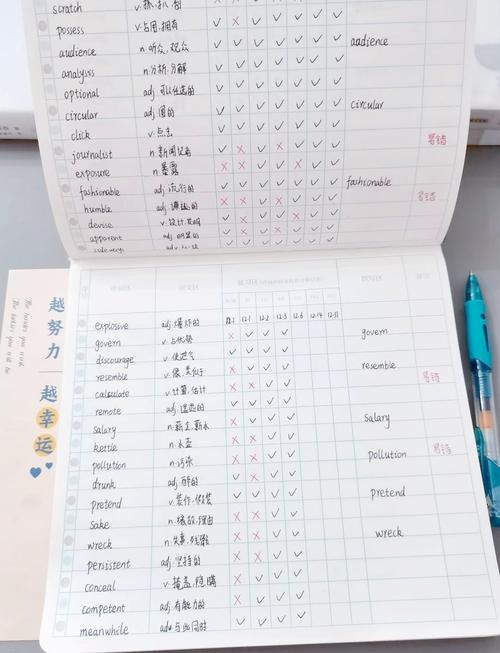 scratch
possess v.占用,拥有
audience n.听众,观众 aadience
analysis n.分析,分解
optional adj.可以任选的
circular adj.圆的 circular
click v.点击
journalist n.新闻记者 易错
exposure n.暴露
fashionable adj.流行的 fashionable
humble adj.谦逊的 易错
devise v.设计,发明
apparent adj.明显的
12-1 12-1 12-2 12-3 12-6 12-14 12-31
explosive adj.爆炸的
govern v.占优势 govern
discourage v.使泄气
resemble v.像,类似于 resemble
calculate v.计算,估计 易错
remote adj.遥远的
salary n.薪金,薪水 salary
kettle n.水壶
pollution n.污染 pollution 易错
drunk adj.醉的
pretend v.装作,假装 pretend
sake n.缘故,理由
wreck n.失事,残骸 wreck
persistent adj.坚持的
conceal v.掩盖,隐瞒
competent adj.有能力的
meanwhile adv.与此同时
越努力
越幸运
The harder you work
The luckier you will be